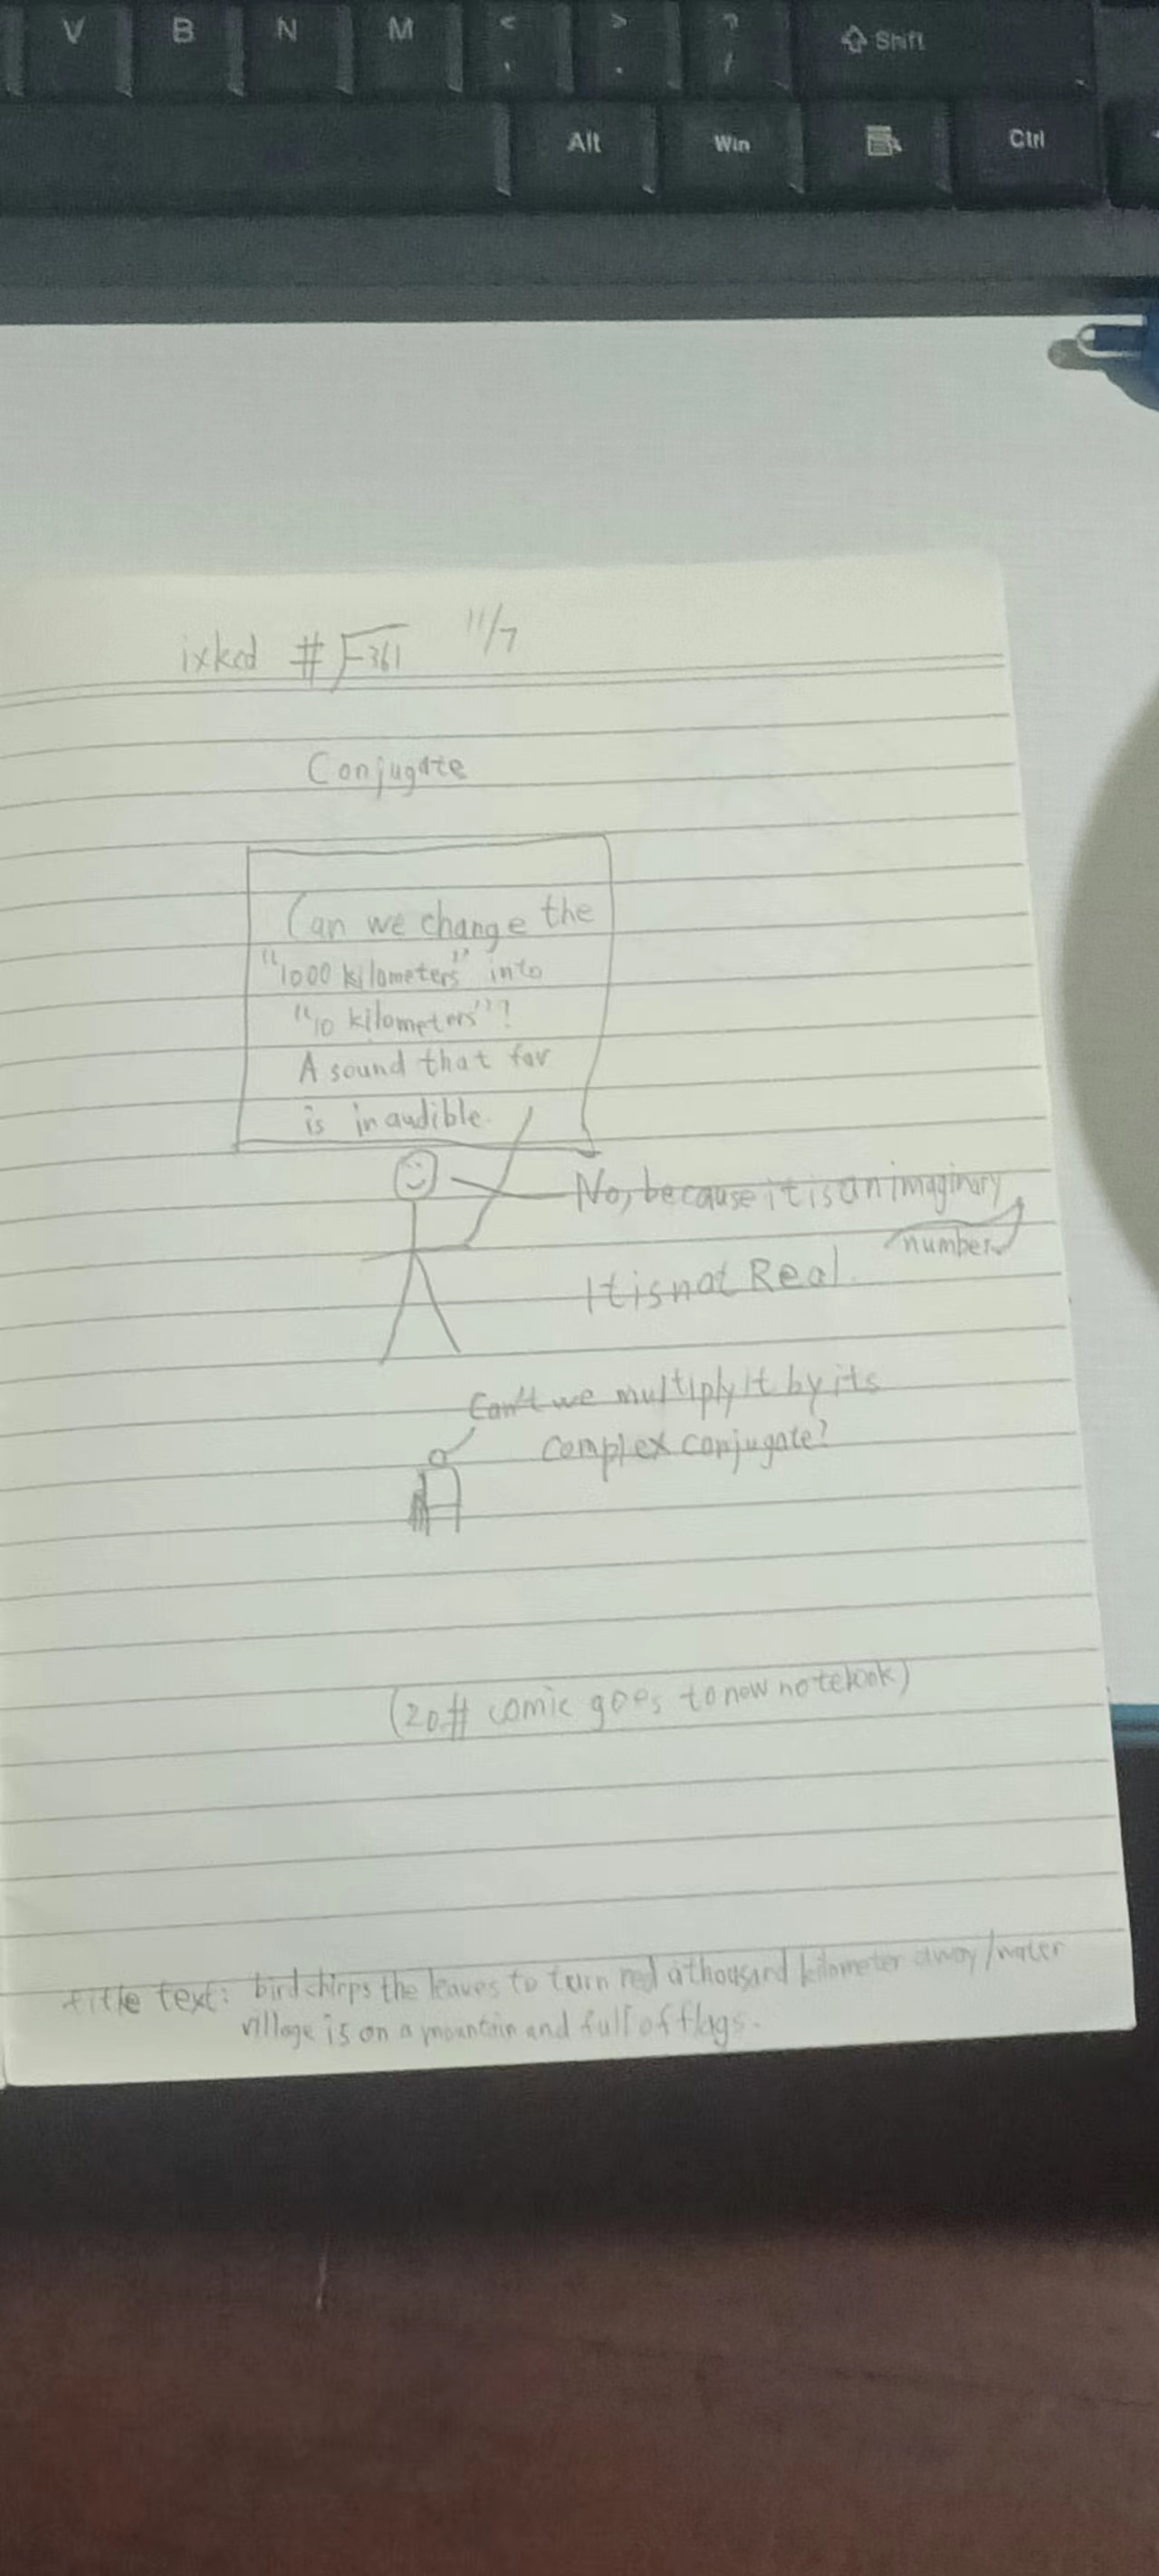 V B N M < , > . ? / Shift
Alt Win Ctrl
ixkcd #√-361 11/7
Conjugate
Can we change the
"1000 kilometers" into
"10 kilometers"?
A sound that far
is inaudible.
No, because it is an imaginary
number
It is not Real.
Can't we multiply it by its
complex conjugate?
(20# comic goes to new notebook)
title text: bird chirps the leaves to turn red a thousand kilometer away/water
village is on a mountain and full of flags.